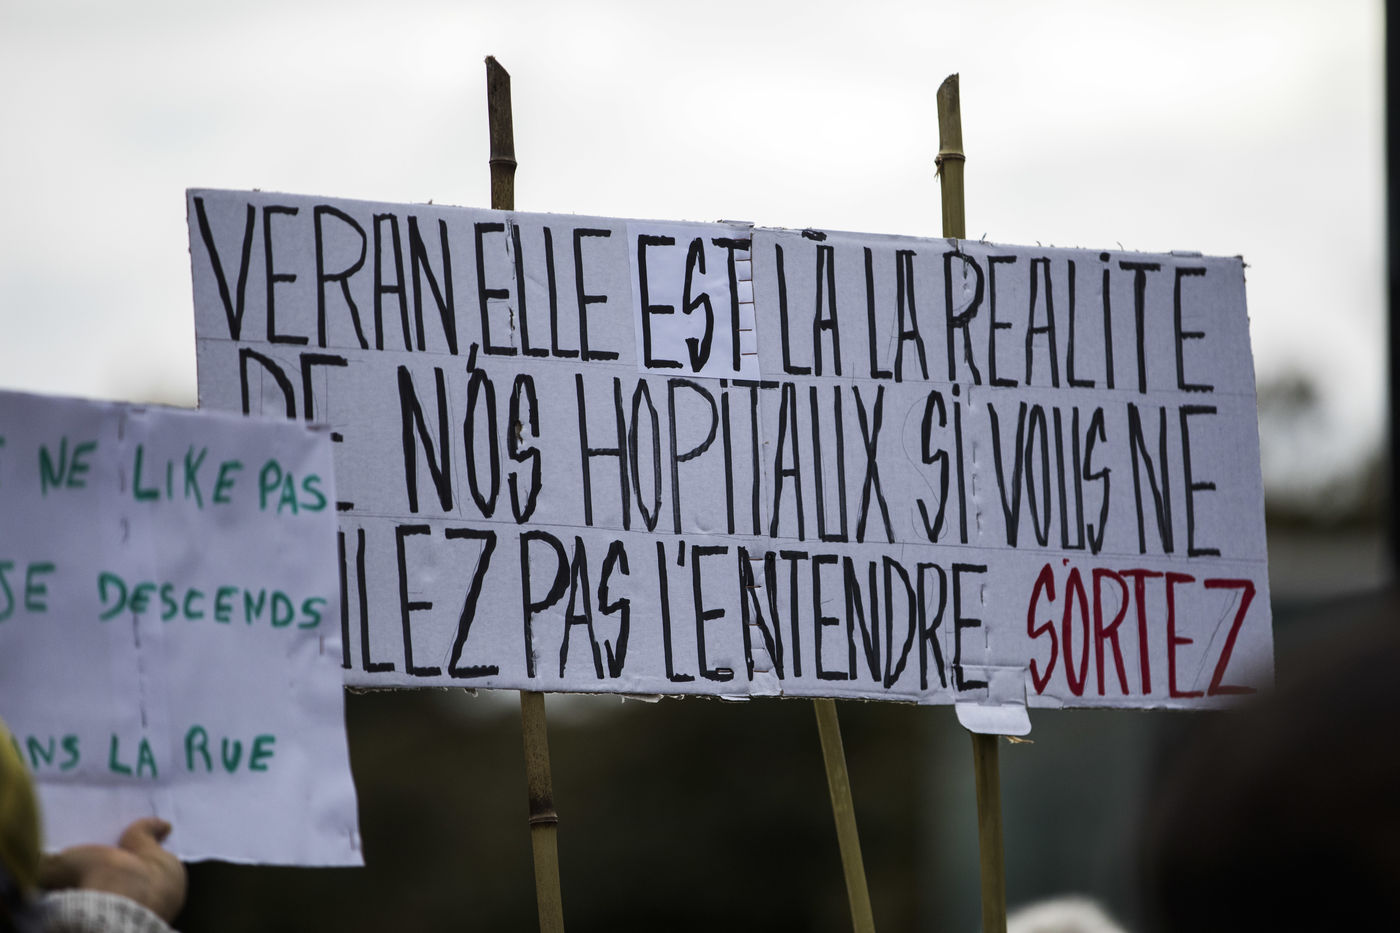 VERAN, ELLE EST LÀ LA REALiTE
DE NOS HOPiTAUX Si VOUS NE
LEZ PAS L'ENTENDRE SORTEZ
NE LIKE PAS
JE DESCENDS
LA RUE